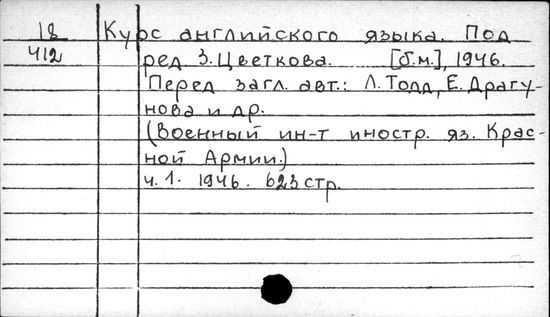 18 Курс английского языка. Под
412 ред З. Цветкова. [б.м.], 1946.
Перед загл. авт.: Л. Тодд, Е. Драгу-
нова и др.
(Военный ин-т иностр. яз. Крас-
ной Армии.)
ч. 1. 1946. 623 стр.